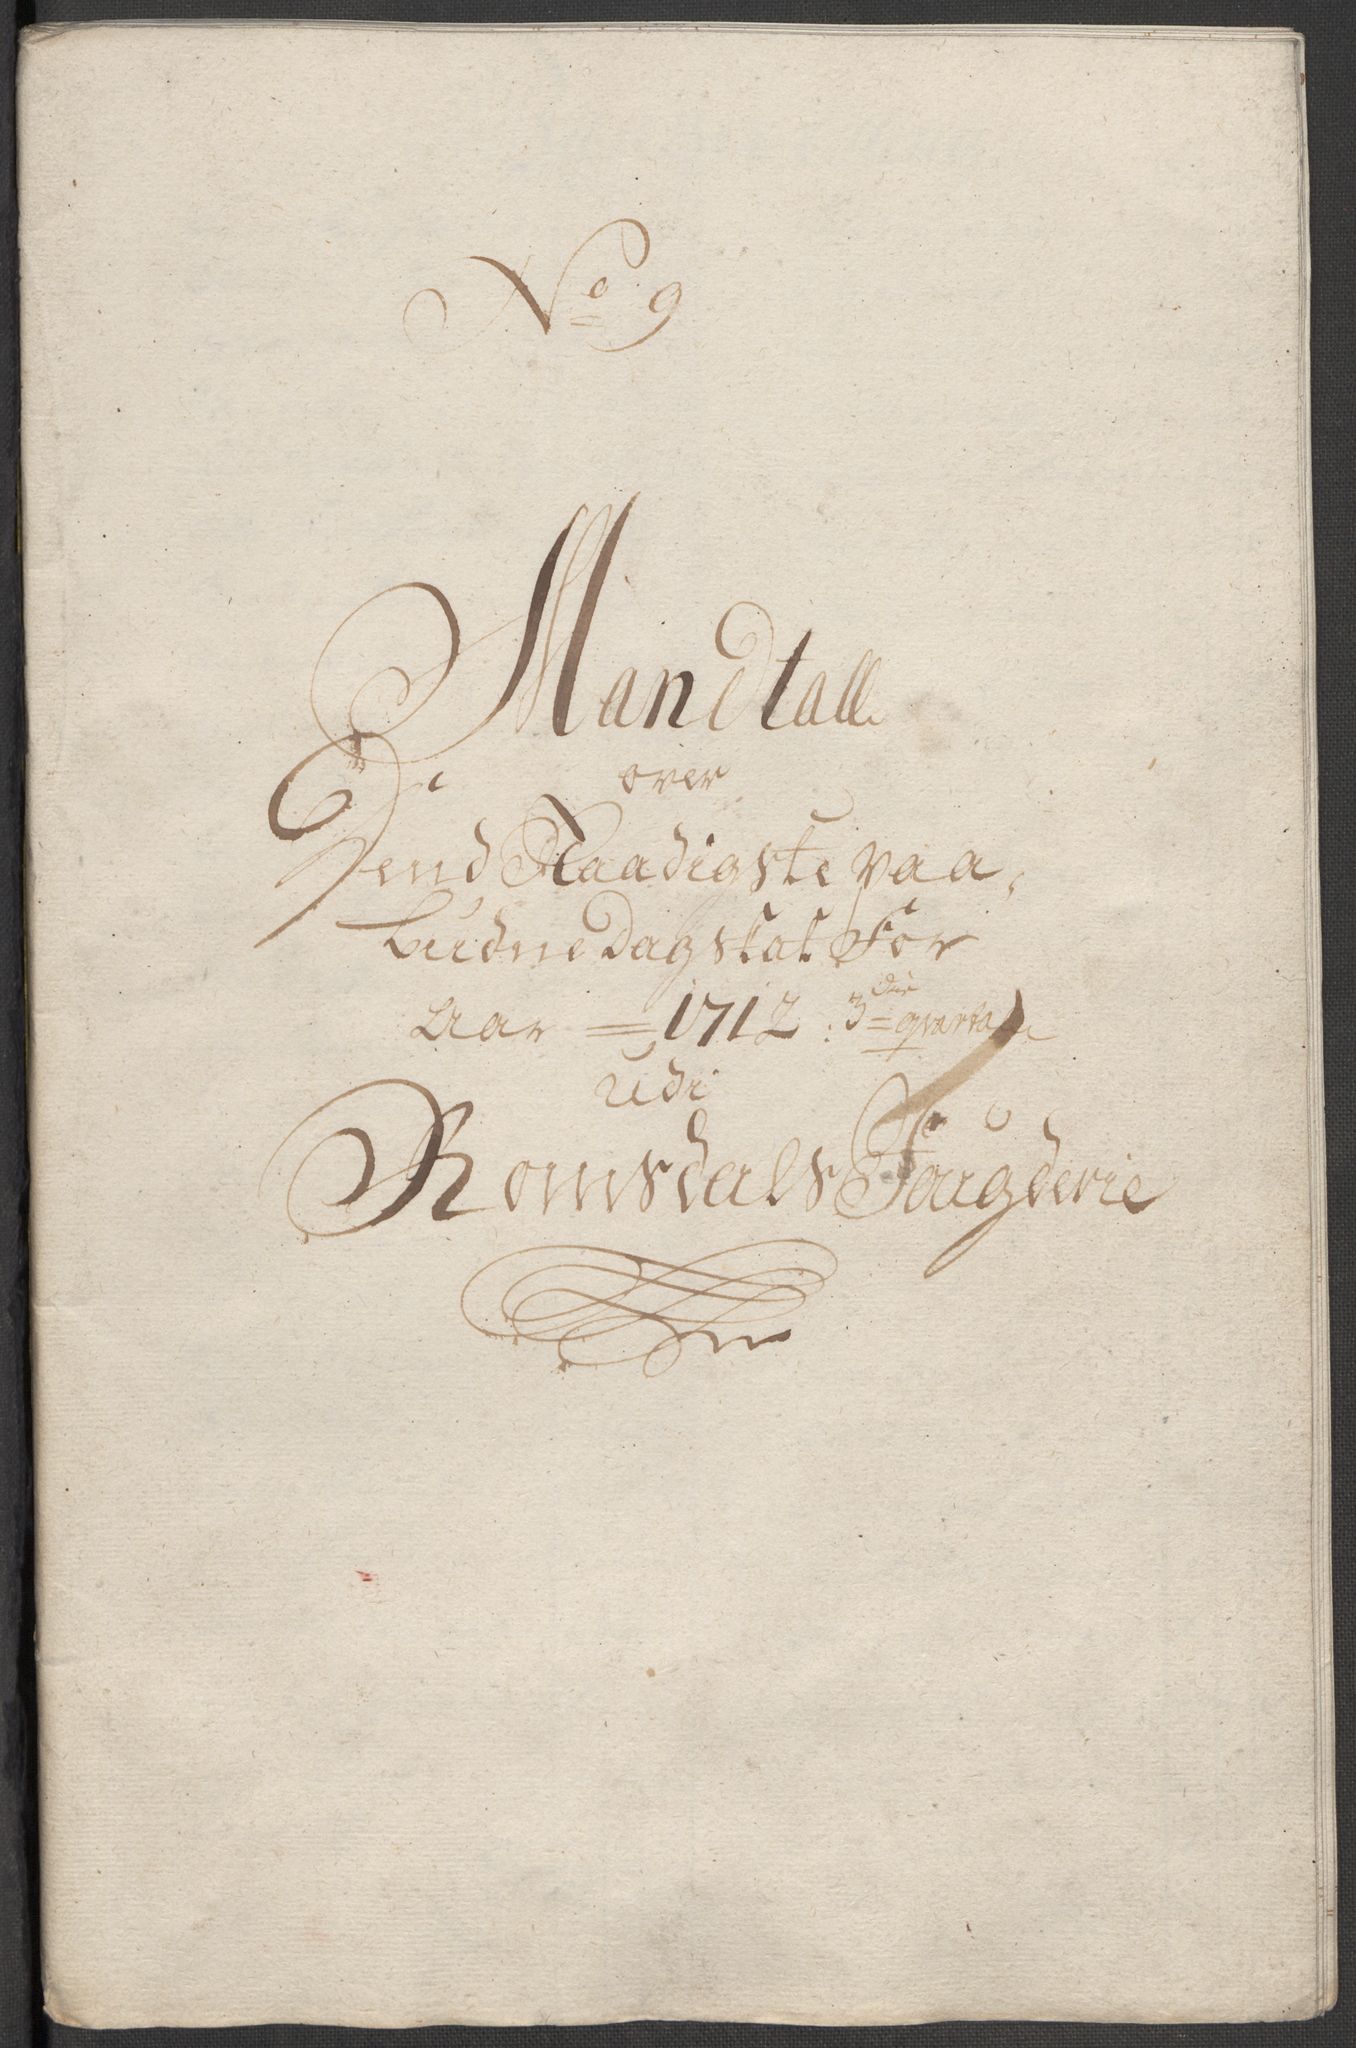 No 9
Mandtall
over
Dend Naadigste paa,
budne Dagskat For
Aar 1712. 3die qvartal
Udi
Romsdals Fougderie